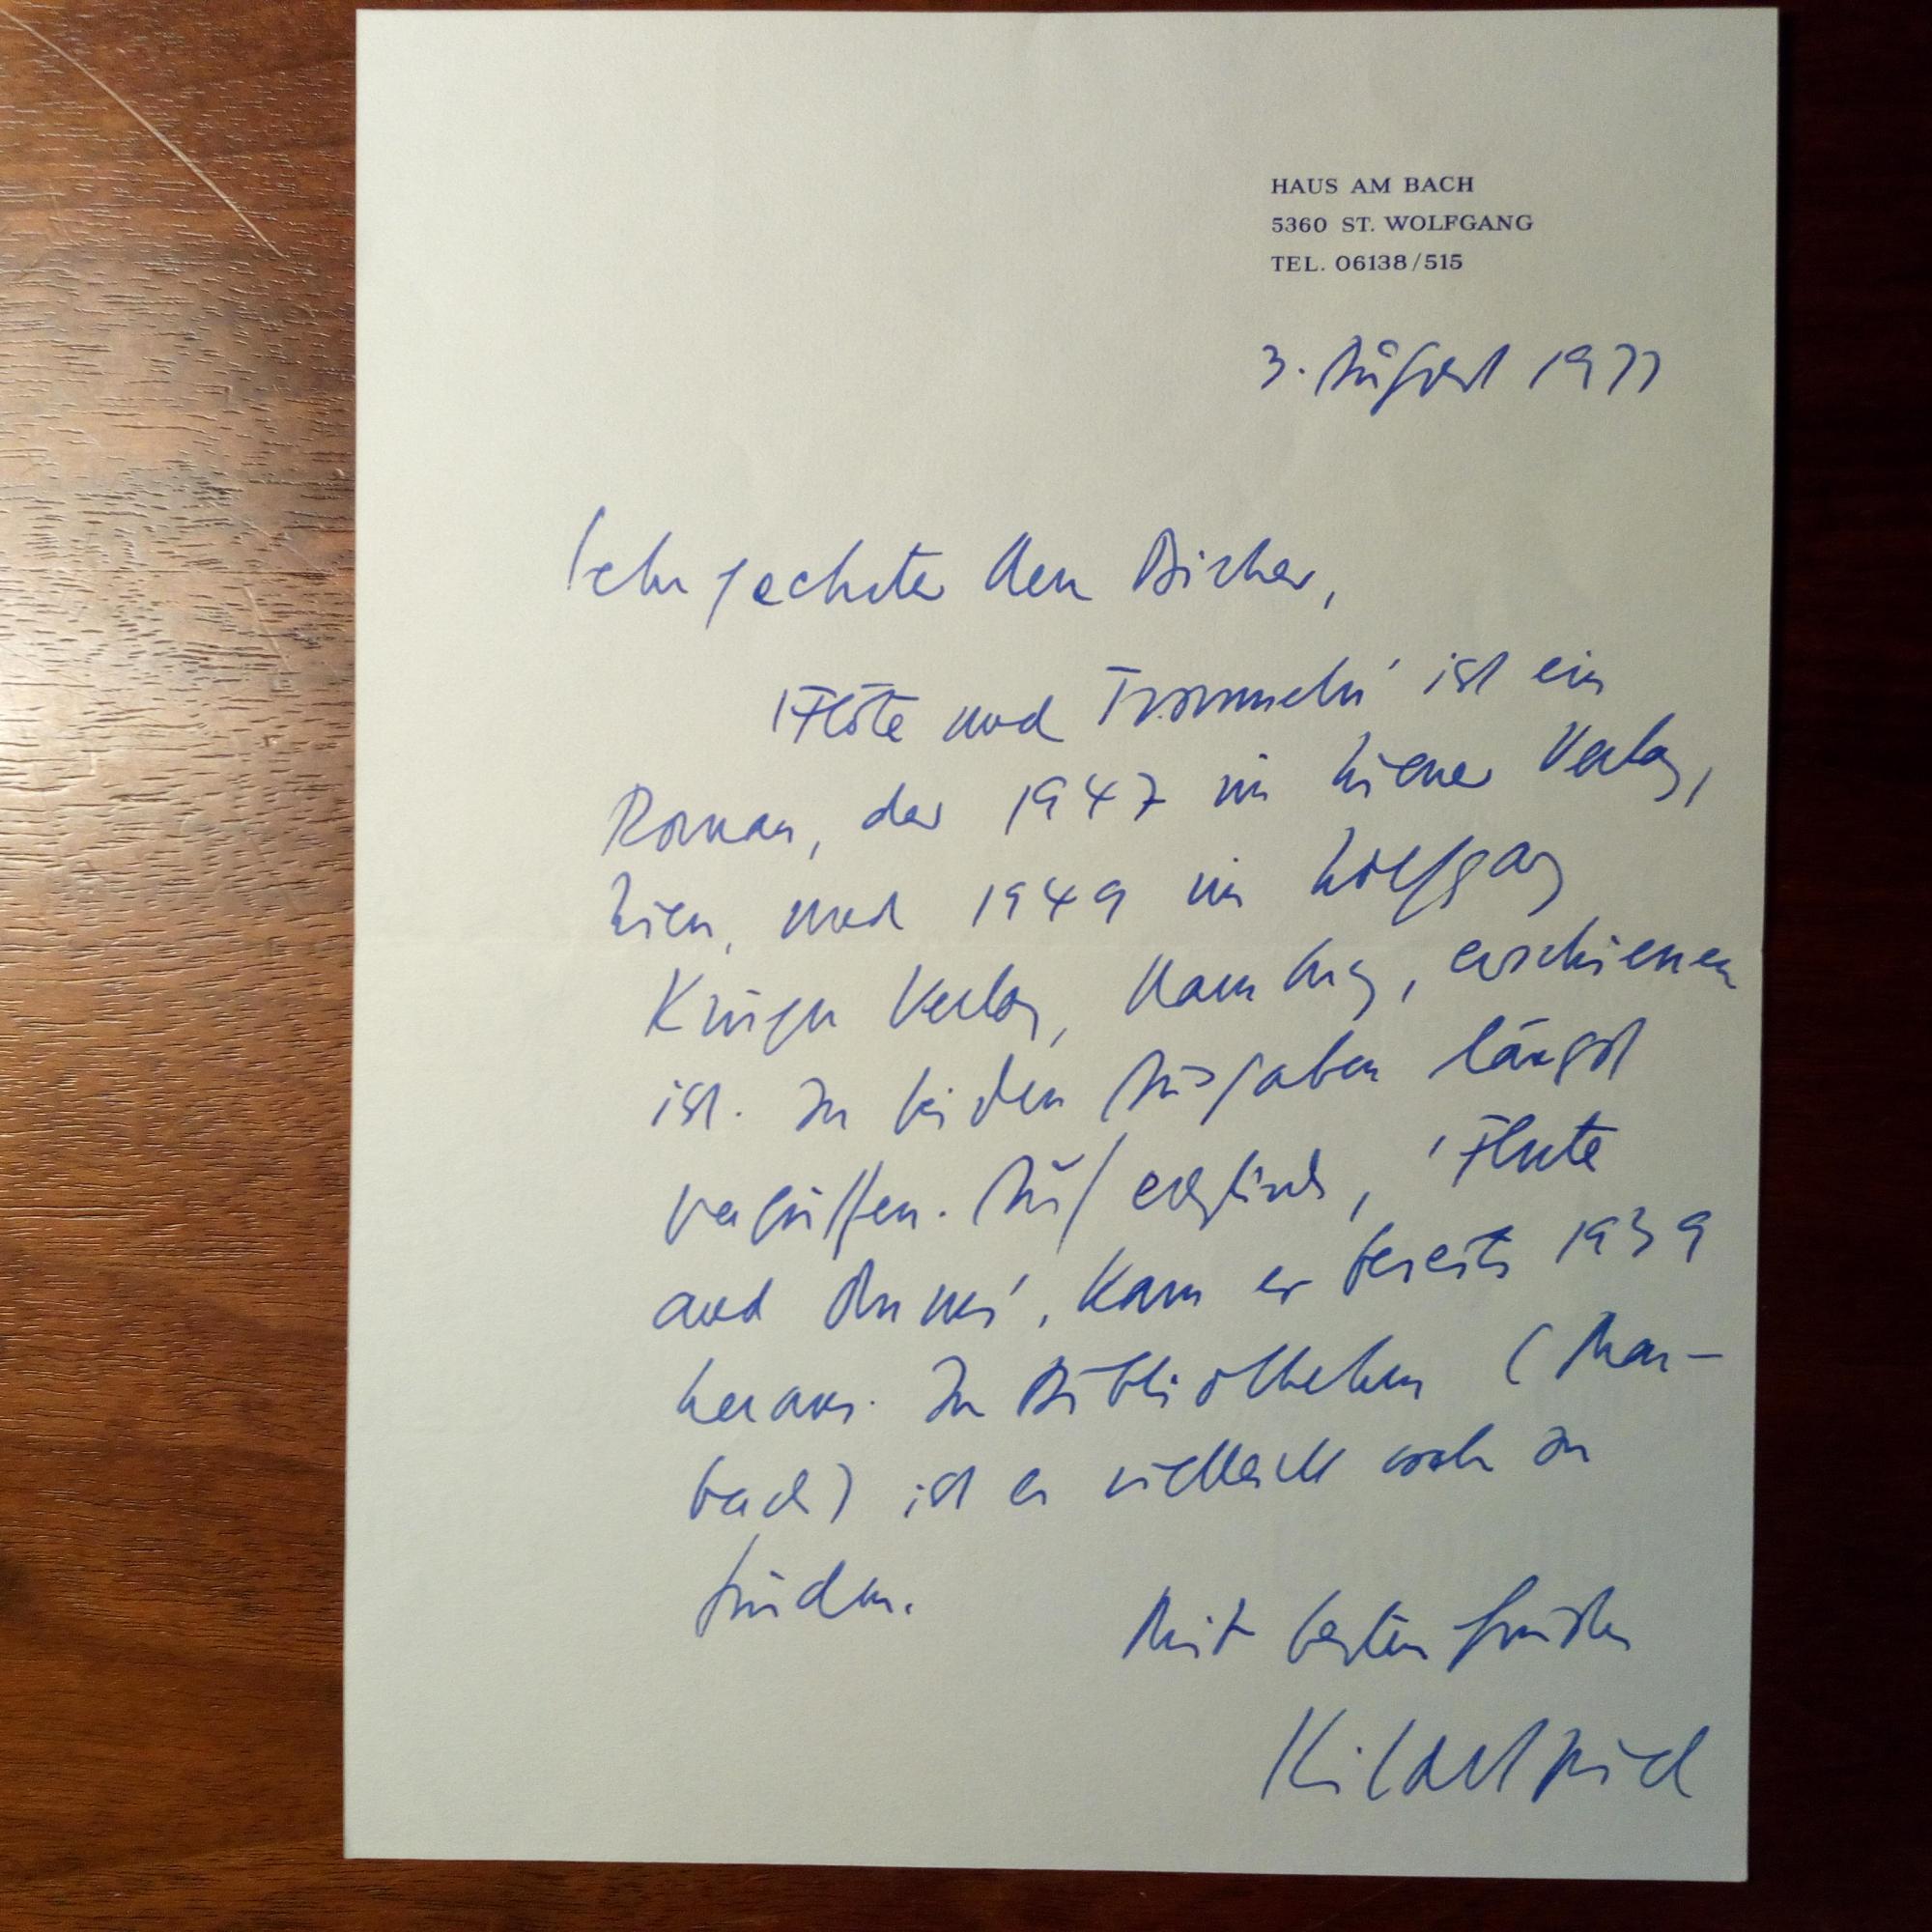 HAUS AM BACH
5360 ST. WOLFGANG
TEL. 06138/515
3. August 1977
Sehr geehrter Herr Bircher,
'Flöte und Trommeln' ist ein
Roman, der 1947 im Wiener Verlag,
Wien, und 1949 im Wolfgang
Krüger Verlag, Hamburg, erschienen
ist. In beiden Ausgaben längst
vergriffen. Auf englisch, 'Flute
and Drums', kam er bereits 1939
heraus. In Bibliotheken (Mar-
bach) ist er vielleicht noch zu
finden.
Mit besten Grüßen
Hilde Spiel